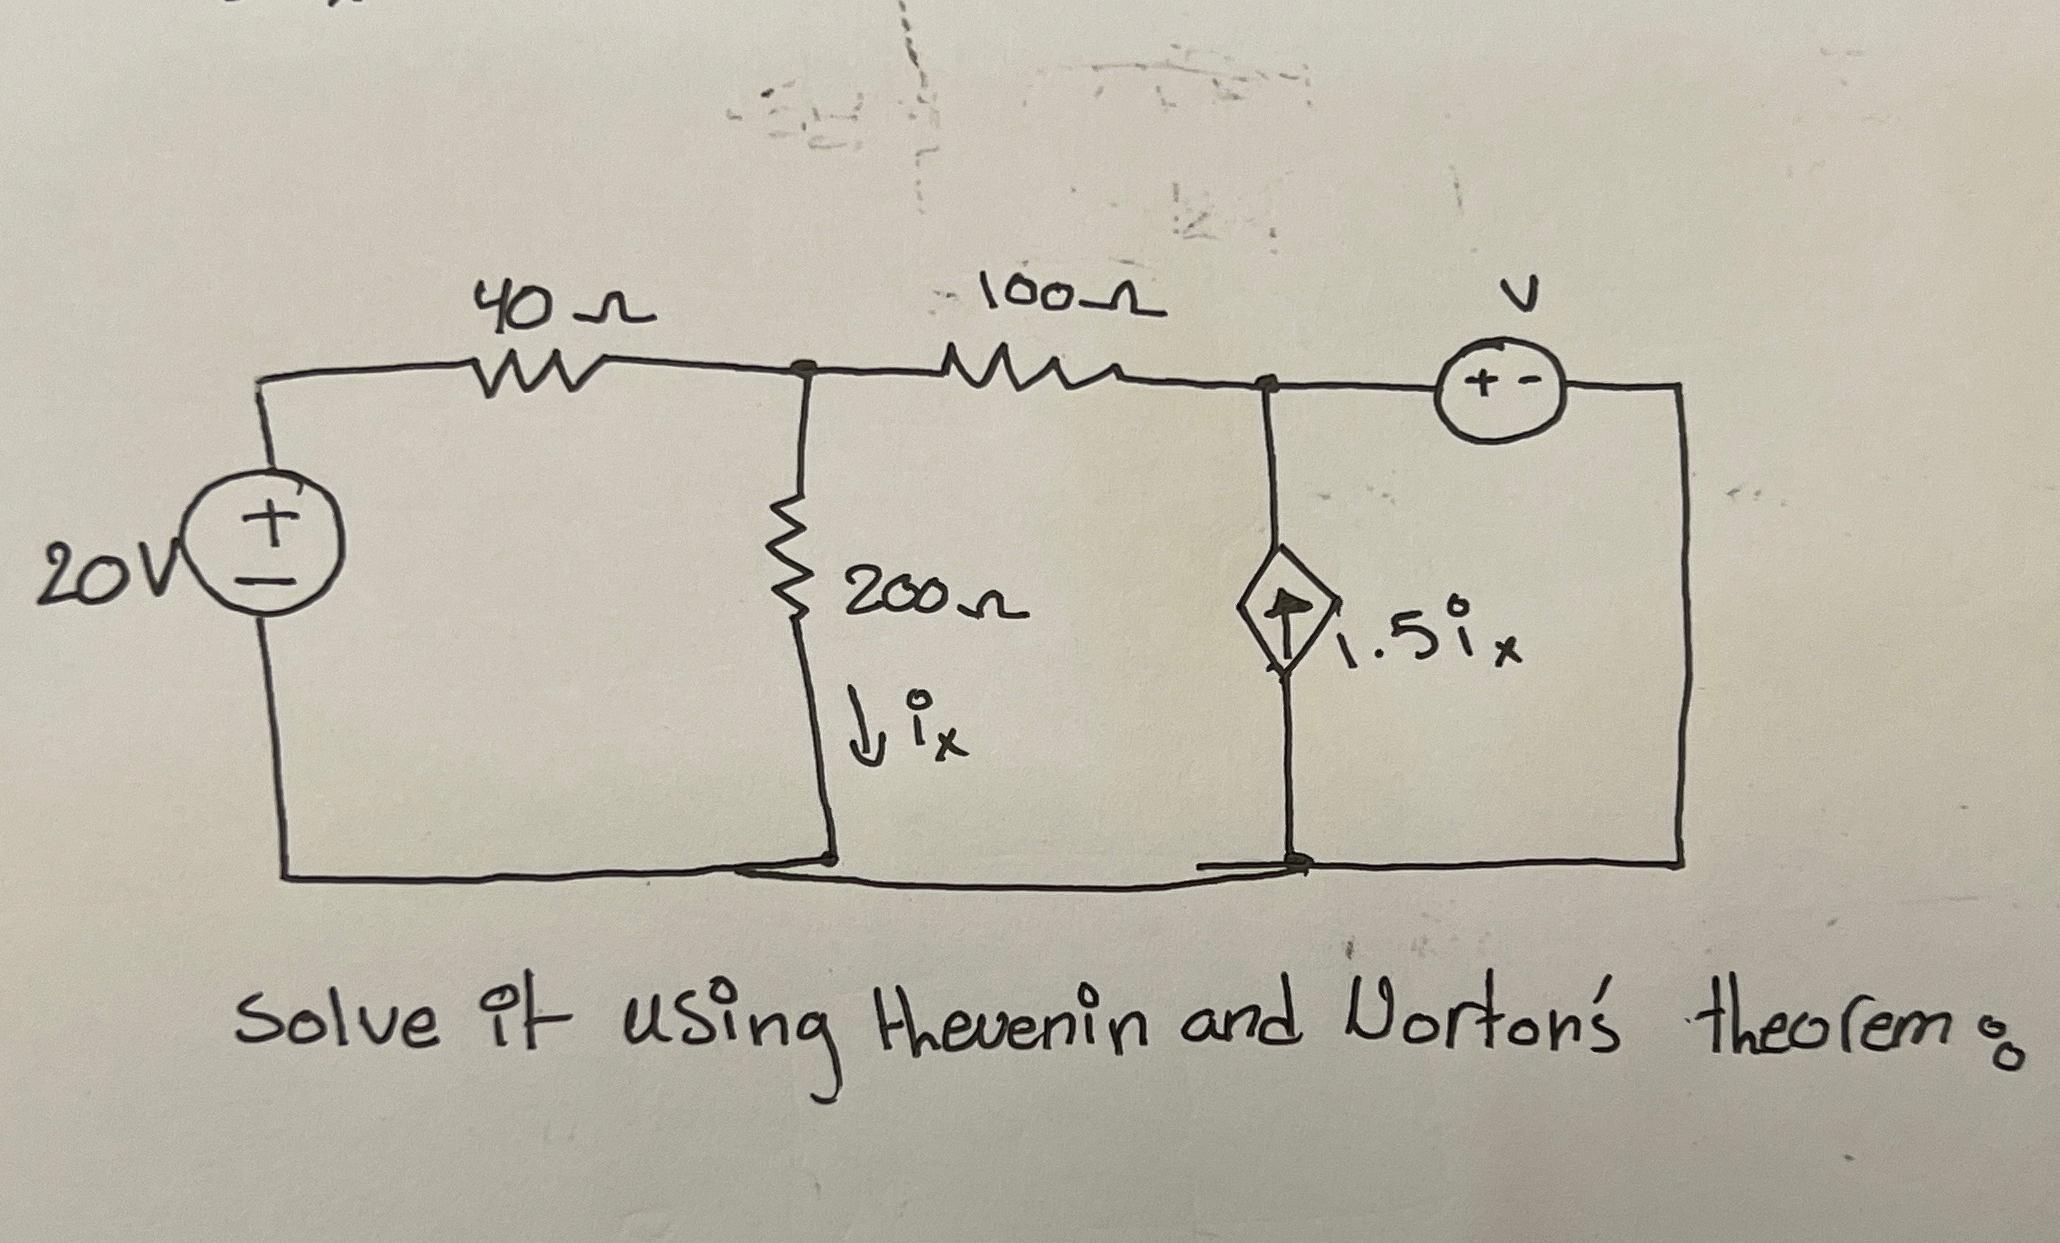 40Ω
100Ω
V
+ -
+
-
20V
200Ω
1.5ix
ix
Solve it using thevenin and Norton's theorem: